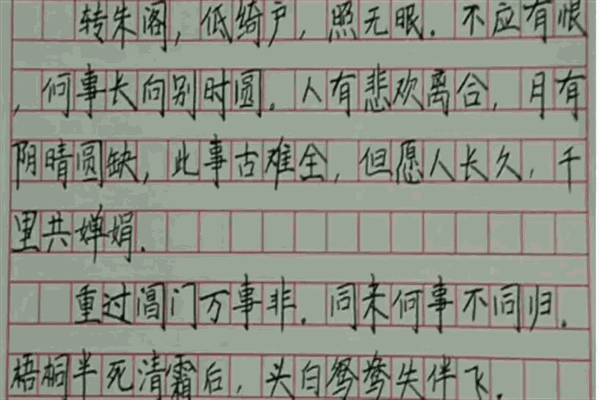 转朱阁，低绮户，照无眠．不应有恨
，何事长向别时圆．人有悲欢离合，月有
阴晴圆缺，此事古难全，但愿人长久，千
里共婵娟．
重过阊门万事非．同来何事不同归．
梧桐半死清霜后，头白鸳鸯失伴飞．